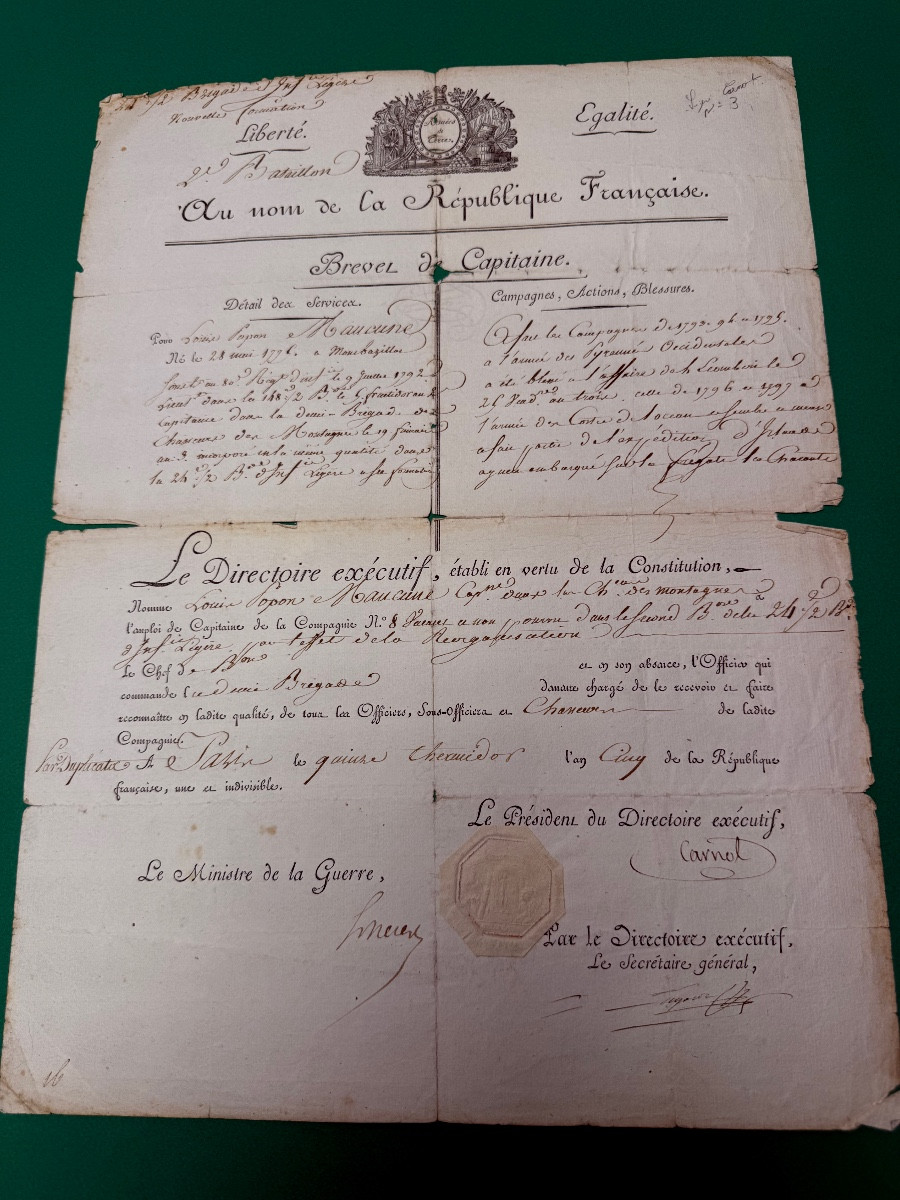 24e 1/2 Brigade d'Infie Légère
Nouvelle formation
Liberté.
Egalité.
Carnot
nº 3
2d Bataillon
Au nom de la République Française.
Brevet de Capitaine.
Détail des Services.
Louis Popon Maucune
Né le 21 mai 177 a Monbazillac
au 80e Régt d'inf le 9 Juillet 1792
dans la 148e 1/2 Bde le 5 fructidor an 2
Capitaine dans la demi-Brigade de
Chasseurs des Montagnes le 19 frimaire
an 3 incorporé en la même qualité dans
la 24e 1/2 Bde d'Infie Légère a sa formation
Campagnes, Actions, Blessures.
A fait les Campagnes de 1793. 94 et 1795.
a l'armée des Pyrennées Occidentales
a été blessé a l'affaire de le
26 Vendre an trois, celle de 1796 et 1797 a
l'armée des Côtes de l'océan
a fait partie de l'expédition d'Irlande
embarqué sur la frégate la Charente
Le Directoire exécutif, établi en vertu de la Constitution,
Nomme Louis Popon Maucune Capne dans les Chaurs des montagnes à
l'emploi de Capitaine de la Compagnie N.º 8 Vacant et non pourvu dans le second Bon de la 24e 1/2 Bde
d'Infie Légère, par l'effet de la Reorganisation
Le Chef de Bon et en son absence, l'Officier qui
commande la demi Brigade demeure chargé de le recevoir et faire
reconnaître en ladite qualité, de tous les Officiers, Sous-Officiers et Chasseurs de ladite
Compagnie.
Par Duplicata A Paris le quinze thermidor l'an Cinq de la République
française, une et indivisible.
Le Président du Directoire exécutif,
Carnot
Le Ministre de la Guerre,
Par le Directoire exécutif,
Le Secrétaire général,